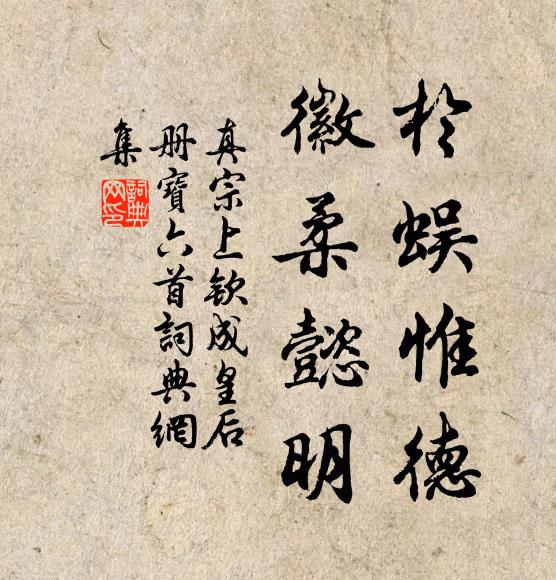 於蜈惟德
徽柔懿明
真宗上欽成皇后
册寶六首詞典網
集
詞典
网印